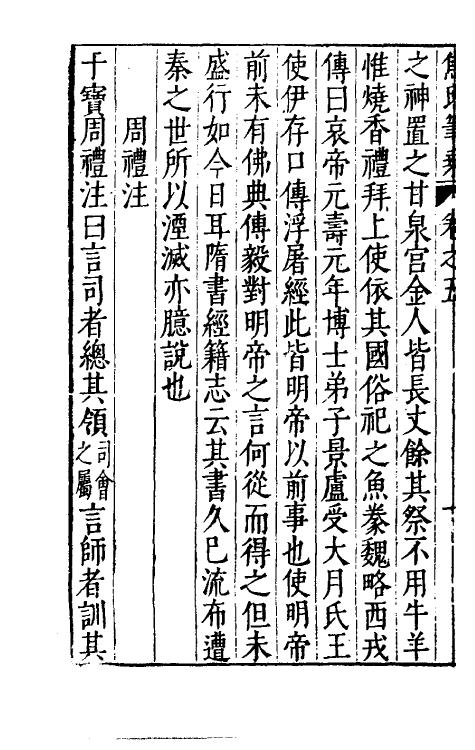 焦氏筆乗 卷之五
之神置之甘泉宫金人皆長丈餘其祭不用牛羊
惟燒香禮拜上使依其國俗祀之魚豢魏略西戎
傳曰哀帝元壽元年博士弟子景盧受大月氏王
使伊存口傳浮屠經此皆明帝以前事也使明帝
前未有佛典傳毅對明帝之言何從而得之但未
盛行如今日耳隋書經籍志云其書久已流布遭
秦之世所以湮滅亦臆說也
周禮注
干寶周禮注曰言司者總其領司會之屬言師者訓其